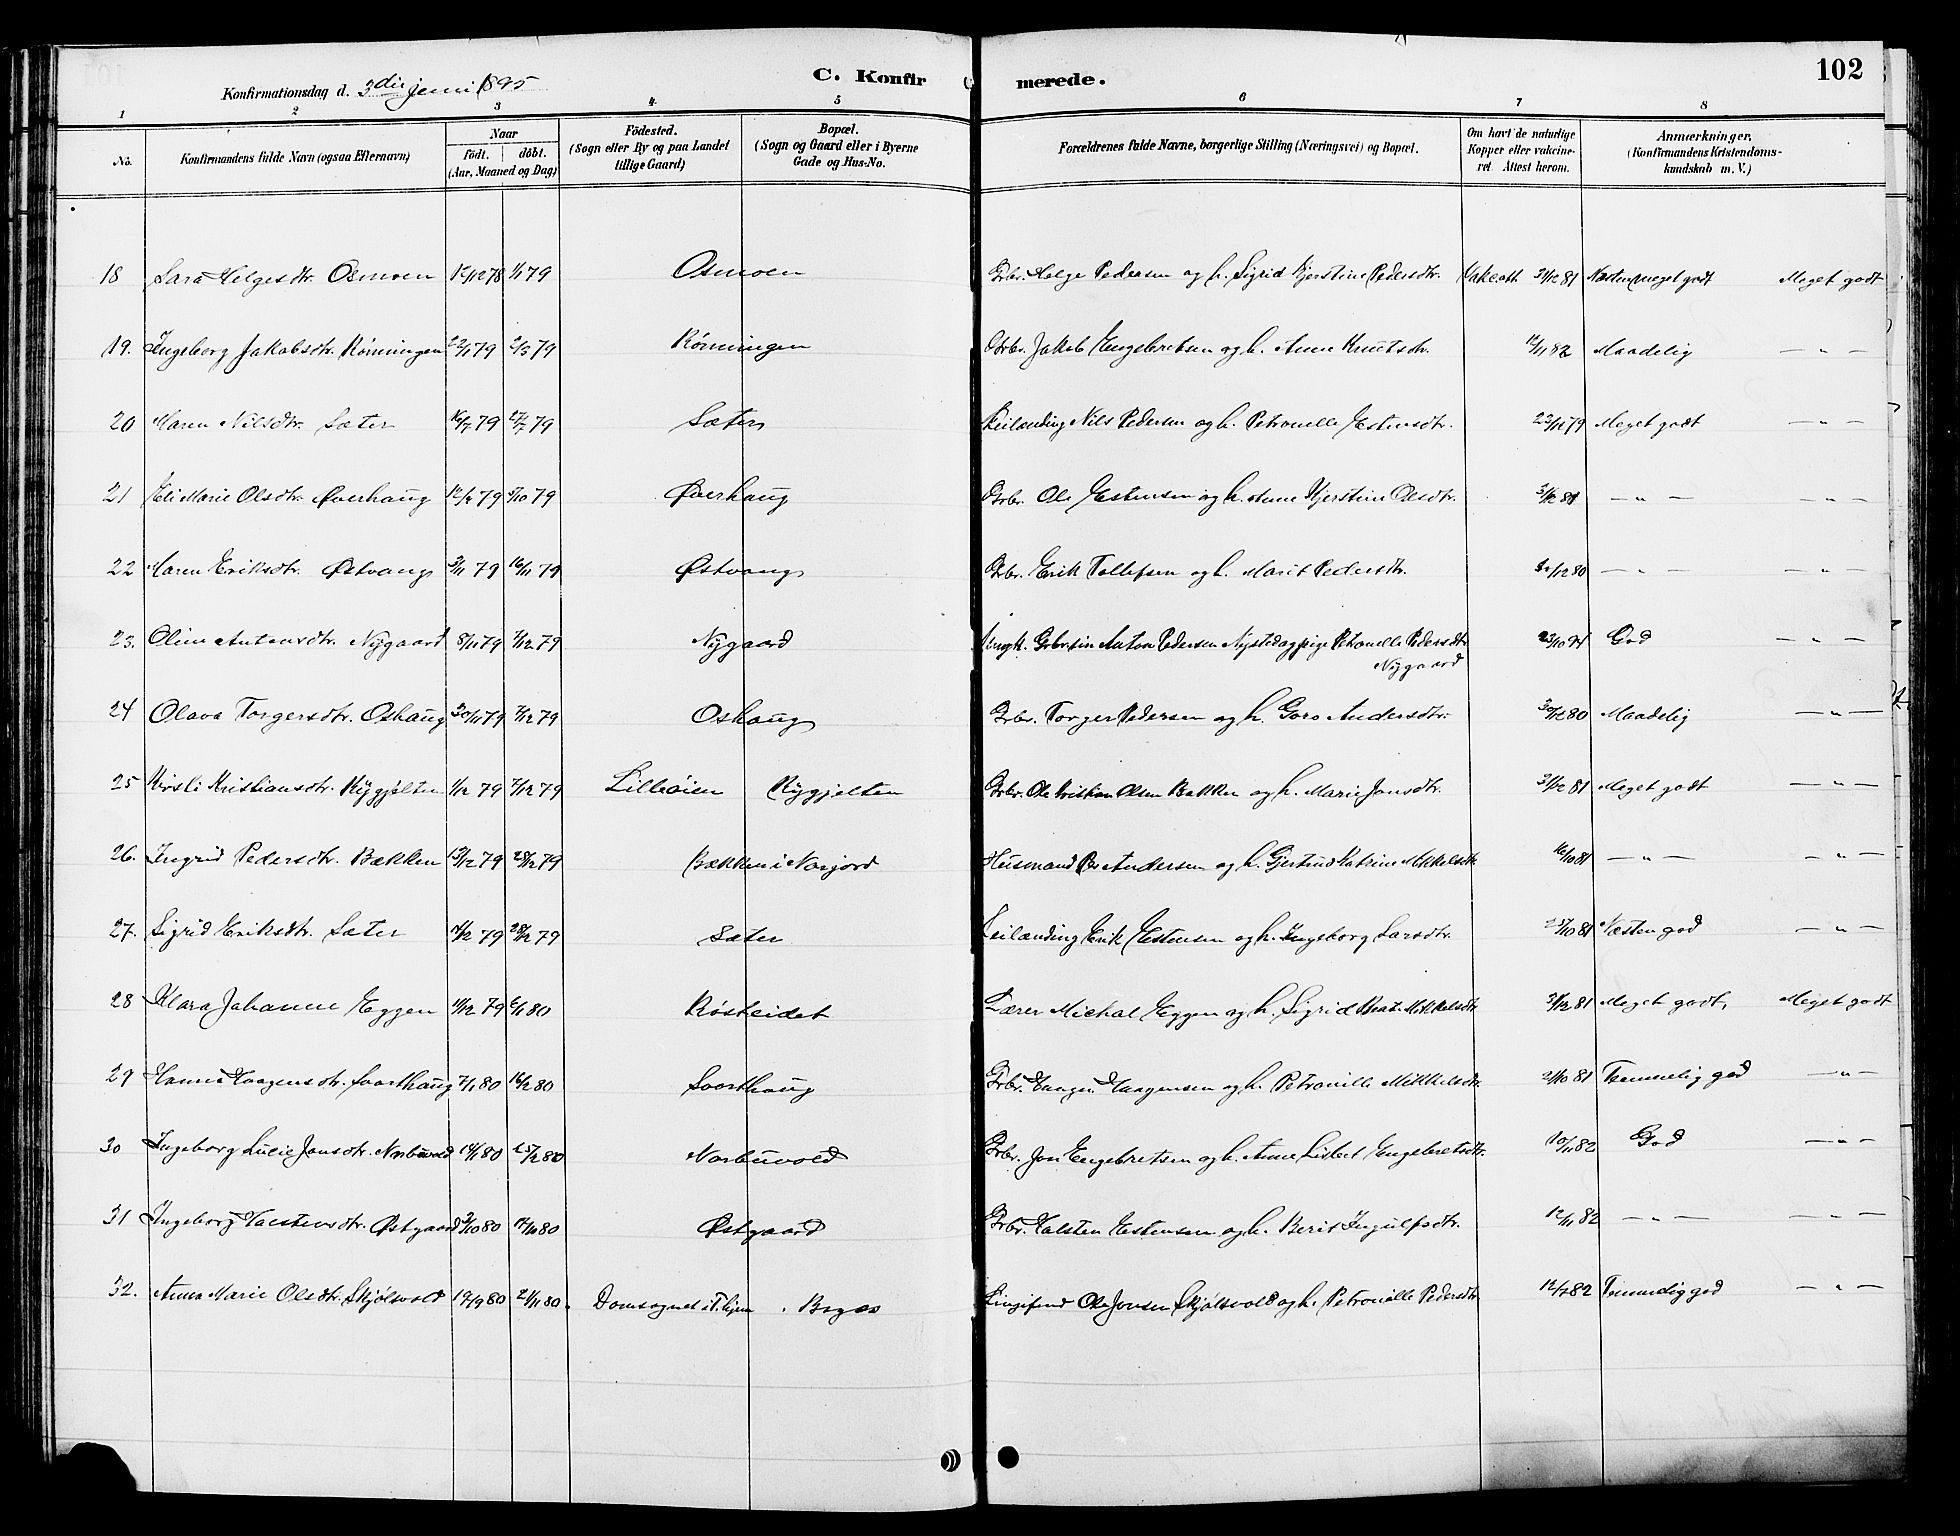 C. Konfirmerede.
102
Konfirmationsdag d. 3die juni 1895
1 2 3 4 5 6 7 8
No. Konfirmandens fulde Navn (ogsaa Efternavn) Naar födt. döbt. (Aar, Maaned og Dag) Födested. (Sogn eller By og paa Landet tillige Gaard) Bopæl. (Sogn og Gaard eller i Byerne Gade og Hus-No. Forældrenes fulde Navne, borgerlige Stilling (Næringsvei) og Bopæl. Om havt de naturlige Kopper eller vakcineret Attest herom. Anmærkninger. (Konfirmandens Kristendomskundskab m. V.)
18 Sara Helgesdtr. Osmoen 12/12 78 1/1 79 Osmoen Grbr. Helge Pedersen og h. Sigrid Kjerstine Pedersdtr. Vakc.att. 31/12 81 Næsten meget godt Meget godt
19. Ingeborg Jakobsdtr. Rønningen 22/1 79 2/3 79 Rønningen Grbr. Jakob Engebretsen og h. Anne Knutsdtr. 12/11 82 Maadelig — " —
20 Maren Nilsdtr. Sæter 16/7 79 27/7 79 Sæter Leilænding Nils Pedersen og h. Petronelle Estensdtr. 22/11 79 Meget godt — " —
21 Eli Marie Olsdtr. Øverhaug 79 79 Øverhaug Grbr. Ole Estensen og h. Anne Kjerstine Olsdtr. 81 — " — — " —
22 Maren Eriksdtr. Østvang 3/11 79 16/11 79 Østvang Grbr. Erik Tollefsen og h. Marit Pedersdtr. 80 — " — — " —
23. Oline Antonsdtr. Nygaard 8/11 79 7/12 79 Nygaard Ungk. Grbr.søn Anton Pedersen Nysted og pige Petronelle Pedersdtr. Nygaard 23/10 94 God — " —
24 Olava Torgersdtr. Oshaug 30/11 79 7/12 79 Oshaug Grbr. Torger Pedersen og h. Goro Andersdtr. 30/12 80 Maadelig — " —
25 Kirsti Kristiansdtr. Rygjelten 1/12 79 7/12 79 Lilleøien Rygjelten Grbr. Ole Kristian Olsen Bakken og h. Marie Jonsdtr. 31/12 81 Meget godt — " —
26. Ingrid Pedersdtr. Bækken 13/12 79 28/12 79 Bækken i Norjord Husmand Per Andersen og h. Gjertrud Katrine Mikkelsdtr. 16/10 81 — " — — " —
27. Sigrid Eriksdtr. Sæter 14/12 79 28/12 79 Sæter Leilænding Erik Estensen og h. Ingeborg Larsdtr. 25/10 81 Næsten god — " —
28 Klara Johanne Eggen 11/12 79 6/1 80 Røsteidet Lærer Michal Eggen og h. Sigrid Beate Mikkelsdtr. 31/12 81 Meget godt, Meget godt
29 Hanna Haagensdtr. Svarthaug 7/1 80 80 Svarthaug Grbr. Haagen Haagensen og h. Petronille Mikkelsdtr. 21/10 81 Temmelig god — " —
30 Ingeborg Lucie Jonsdtr. Norbuvold 14/1 80 25/2 80 Norbuvold Grbr. Jon Engebretsen og h. Anne Lisbet Engebretsdtr. 10/11 82 God — " —
31 Ingeborg Halstensdtr. Østgaard 3/10 80 17/10 80 Østgaard Grbr. Halsten Estensen og h. Berit Ingulfsdtr. 12/11 82 — " — — " —
32. Anna Marie Olsdtr. Skjølsvold 19/9 80 21/11 80 Domsognet i T.hjem Ole Jonsen Skjølsvold og h. Petronille Pedersdtr. 12/7 82 Temmelig god — " —